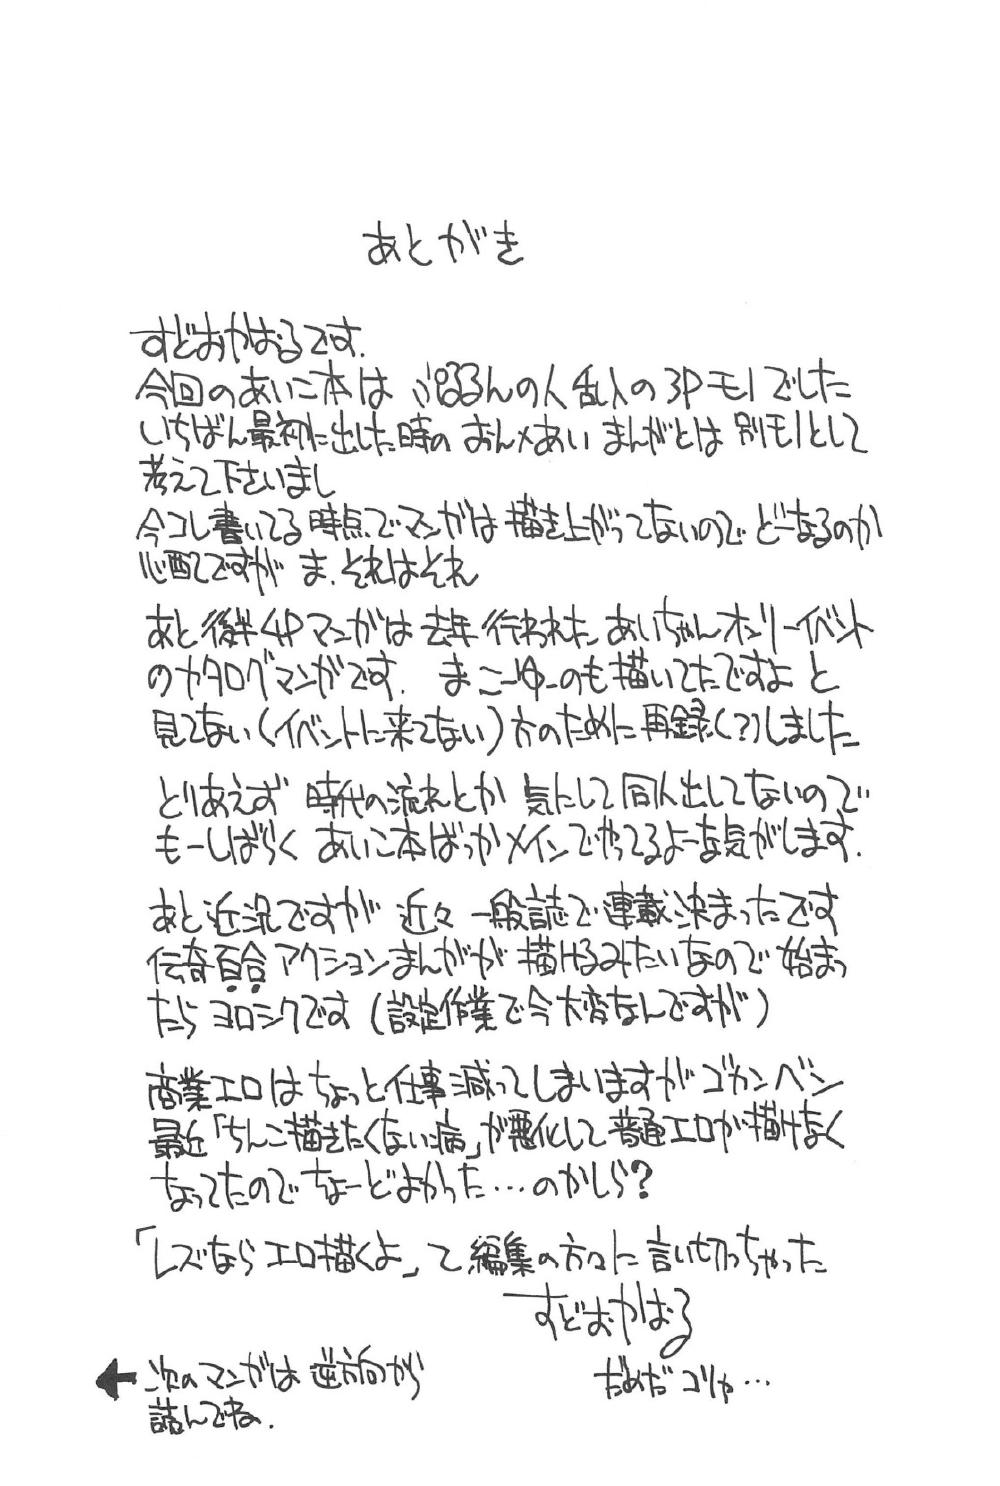 あとがき
すどおかおるです.
今回のあいこ本は ぷるるんの人 乱入の3Pモノでした
いちばん最初に出した時の おんぷ×あい まんがとは 別モノとして
考えて下さいまし
今コレ書いてる時点でマンガは描き上がってないので どーなるのか
心配ですが ま、それはそれ
あと後半4Pマンガは去年行われた、あいちゃんオンリーイベント
のカタログマンガです. まこーゆーのも描いてたですよ と
見てない(イベントに来てない)方のために再録(?)しました
とりあえず 時代の流れとか 気にして同人出してないので
もーしばらく あいこ本ばっかメインでやってるよーな気がします.
あと近況ですが 近々 一般誌で連載決まったです
伝奇百合アクションまんがが 描けるみたいなので 始まっ
たら ヨロシクです (設定作業で今大変なんですが)
商業エロはちょっと仕事減ってしまいますがゴカンベン
最近「ちんこ描きたくない病」が悪化して普通エロが描けなく
なってたのでちょーどよかった…のかしら?
「レズなら エロ描くよ」て編集の方々に言い切っちゃった
すどおかおる
だめだ コリャ…
← 次のマンガは逆方向から
読んでね.